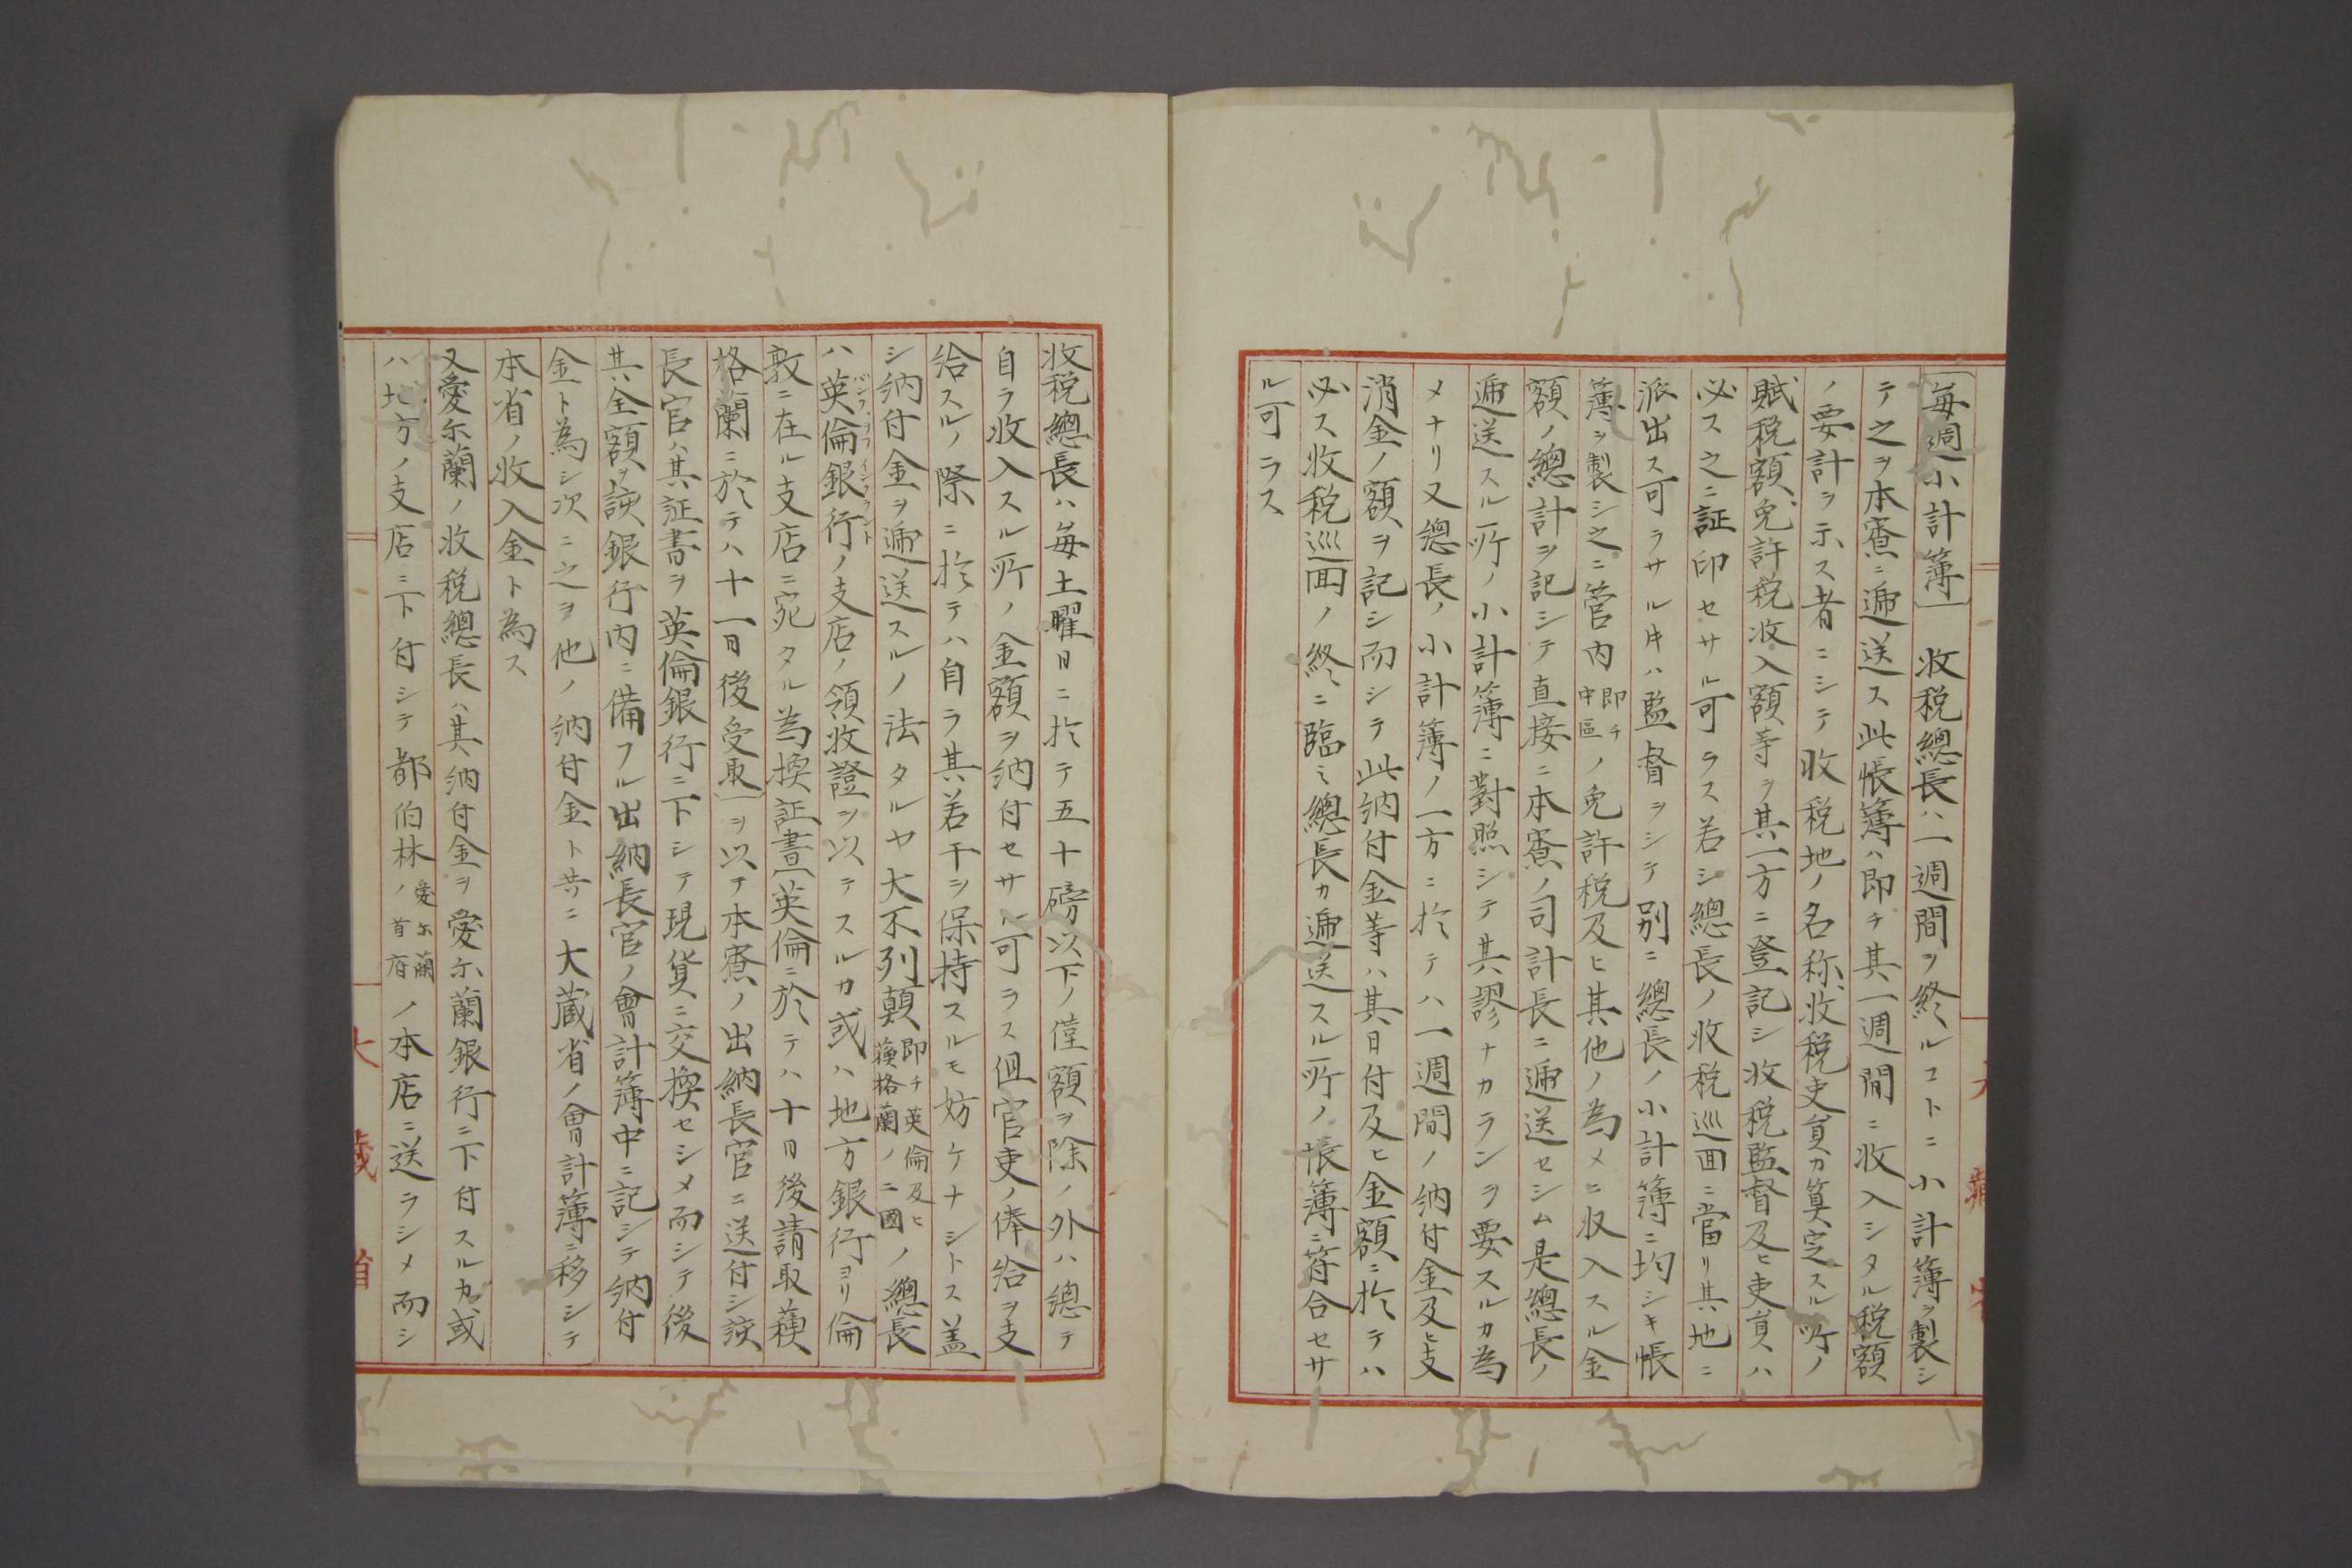 〔毎週小計簿〕 收税總長ハ一週間ヲ終ルコトニ小計簿ヲ製シ
テ之ヲ本寮ニ逓送ス此帳簿ハ即チ其一週間ニ收入シタル税額
ノ要計ヲ示ス者ニシテ收税地ノ名称、收税吏員カ算定スル所ノ
賦税額、免許税收入額等ヲ其一方ニ登記シ收税監督及ヒ吏員ハ
必ス之ニ証印セサル可ラス若シ總長ノ收税巡回ニ當リ其地ニ
派出ス可ラサル片ハ監督ヲシテ別ニ總長ノ小計簿ニ均シキ帳
簿ヲ製シ之ニ管内即チ中區ノ免許税及ヒ其他ノ為メニ収入スル金
額ノ總計ヲ記シテ直接ニ本寮ノ司計長ニ逓送セシム是總長ノ
逓送スル所ノ小計簿ニ對照シテ其謬ナカランヲ要スルカ為
メナリ又總長ノ小計簿ノ一方ニ於テハ一週間ノ納付金及ヒ支
消金ノ額ヲ記シ而シテ此納付金等ハ其日付及ヒ金額ニ於テハ
必ス收税巡回ノ終ニ臨ミ總長カ逓送スル所ノ帳簿ニ符合セサ
ル可ラス
收税總長ハ毎土曜日ニ於テ五十磅以下ノ僅額ヲ除ノ外ハ總テ
自ラ收入スル所ノ金額ヲ納付セサル可ラス但官吏ノ俸給ヲ支
給スルノ際ニ於テハ自ラ其若干ヲ保持スルモ妨ケナシトス盖
シ納付金ヲ逓送スルノ法タルヤ大不列顛即チ英倫及ヒ蘓格蘭ノ二國ノ總長
ハ英倫銀行バンク、ヲフ、イングラントノ支店ノ領收證ヲ以テスルカ或ハ地方銀行ヨリ倫
敦ニ在ル支店ニ宛タル為換証書〔英倫ニ於テハ十日後請取蘓
格蘭ニ於テハ十一日後受取〕ヲ以テ本寮ノ出納長官ニ送付シ該
長官ハ其証書ヲ英倫銀行ニ下シテ現貨ニ交換セシメ而シテ後
其全額ヲ該銀行内ニ備フル出納長官ノ會計簿中ニ記シテ納付
金ト為シ次ニ之ヲ他ノ納付金ト共ニ大蔵省ノ會計簿ニ移シテ
本省ノ收入金ト為ス
又愛尓蘭ノ收税總長ハ其納付金ヲ愛尓蘭銀行ニ下付スルカ或
ハ地方ノ支店ニ下付シテ都伯林愛尓蘭ノ首府ノ本店ニ送ラシメ而シ
大蔵省